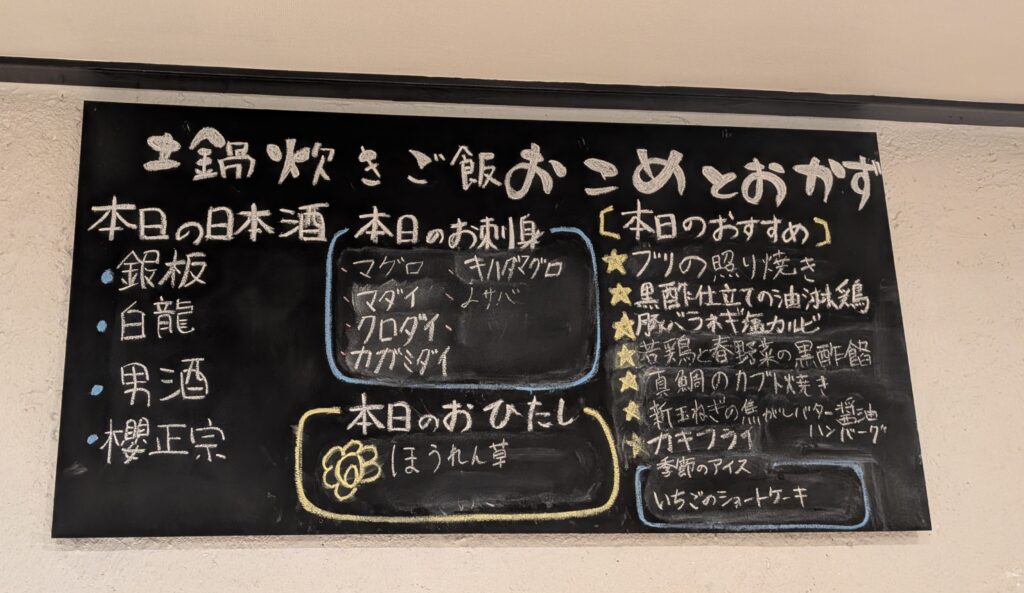 土鍋炊きご飯おこめとおかず
本日の日本酒
銀板
白龍
男酒
櫻正宗
本日のお刺身
マグロ
キハダマグロ
マダイ
〆サバ
クロダイ
カガミダイ
本日のおひたし
ほうれん草
【本日のおすすめ】
ブリの照り焼き
黒酢仕立ての油淋鶏
豚バラネギ塩カルビ
若鶏と春野菜の黒酢餡
真鯛のカブト焼き
新玉ねぎの焦がしバター醤油
ハンバーグ
カキフライ
季節のアイス
いちごのショートケーキ